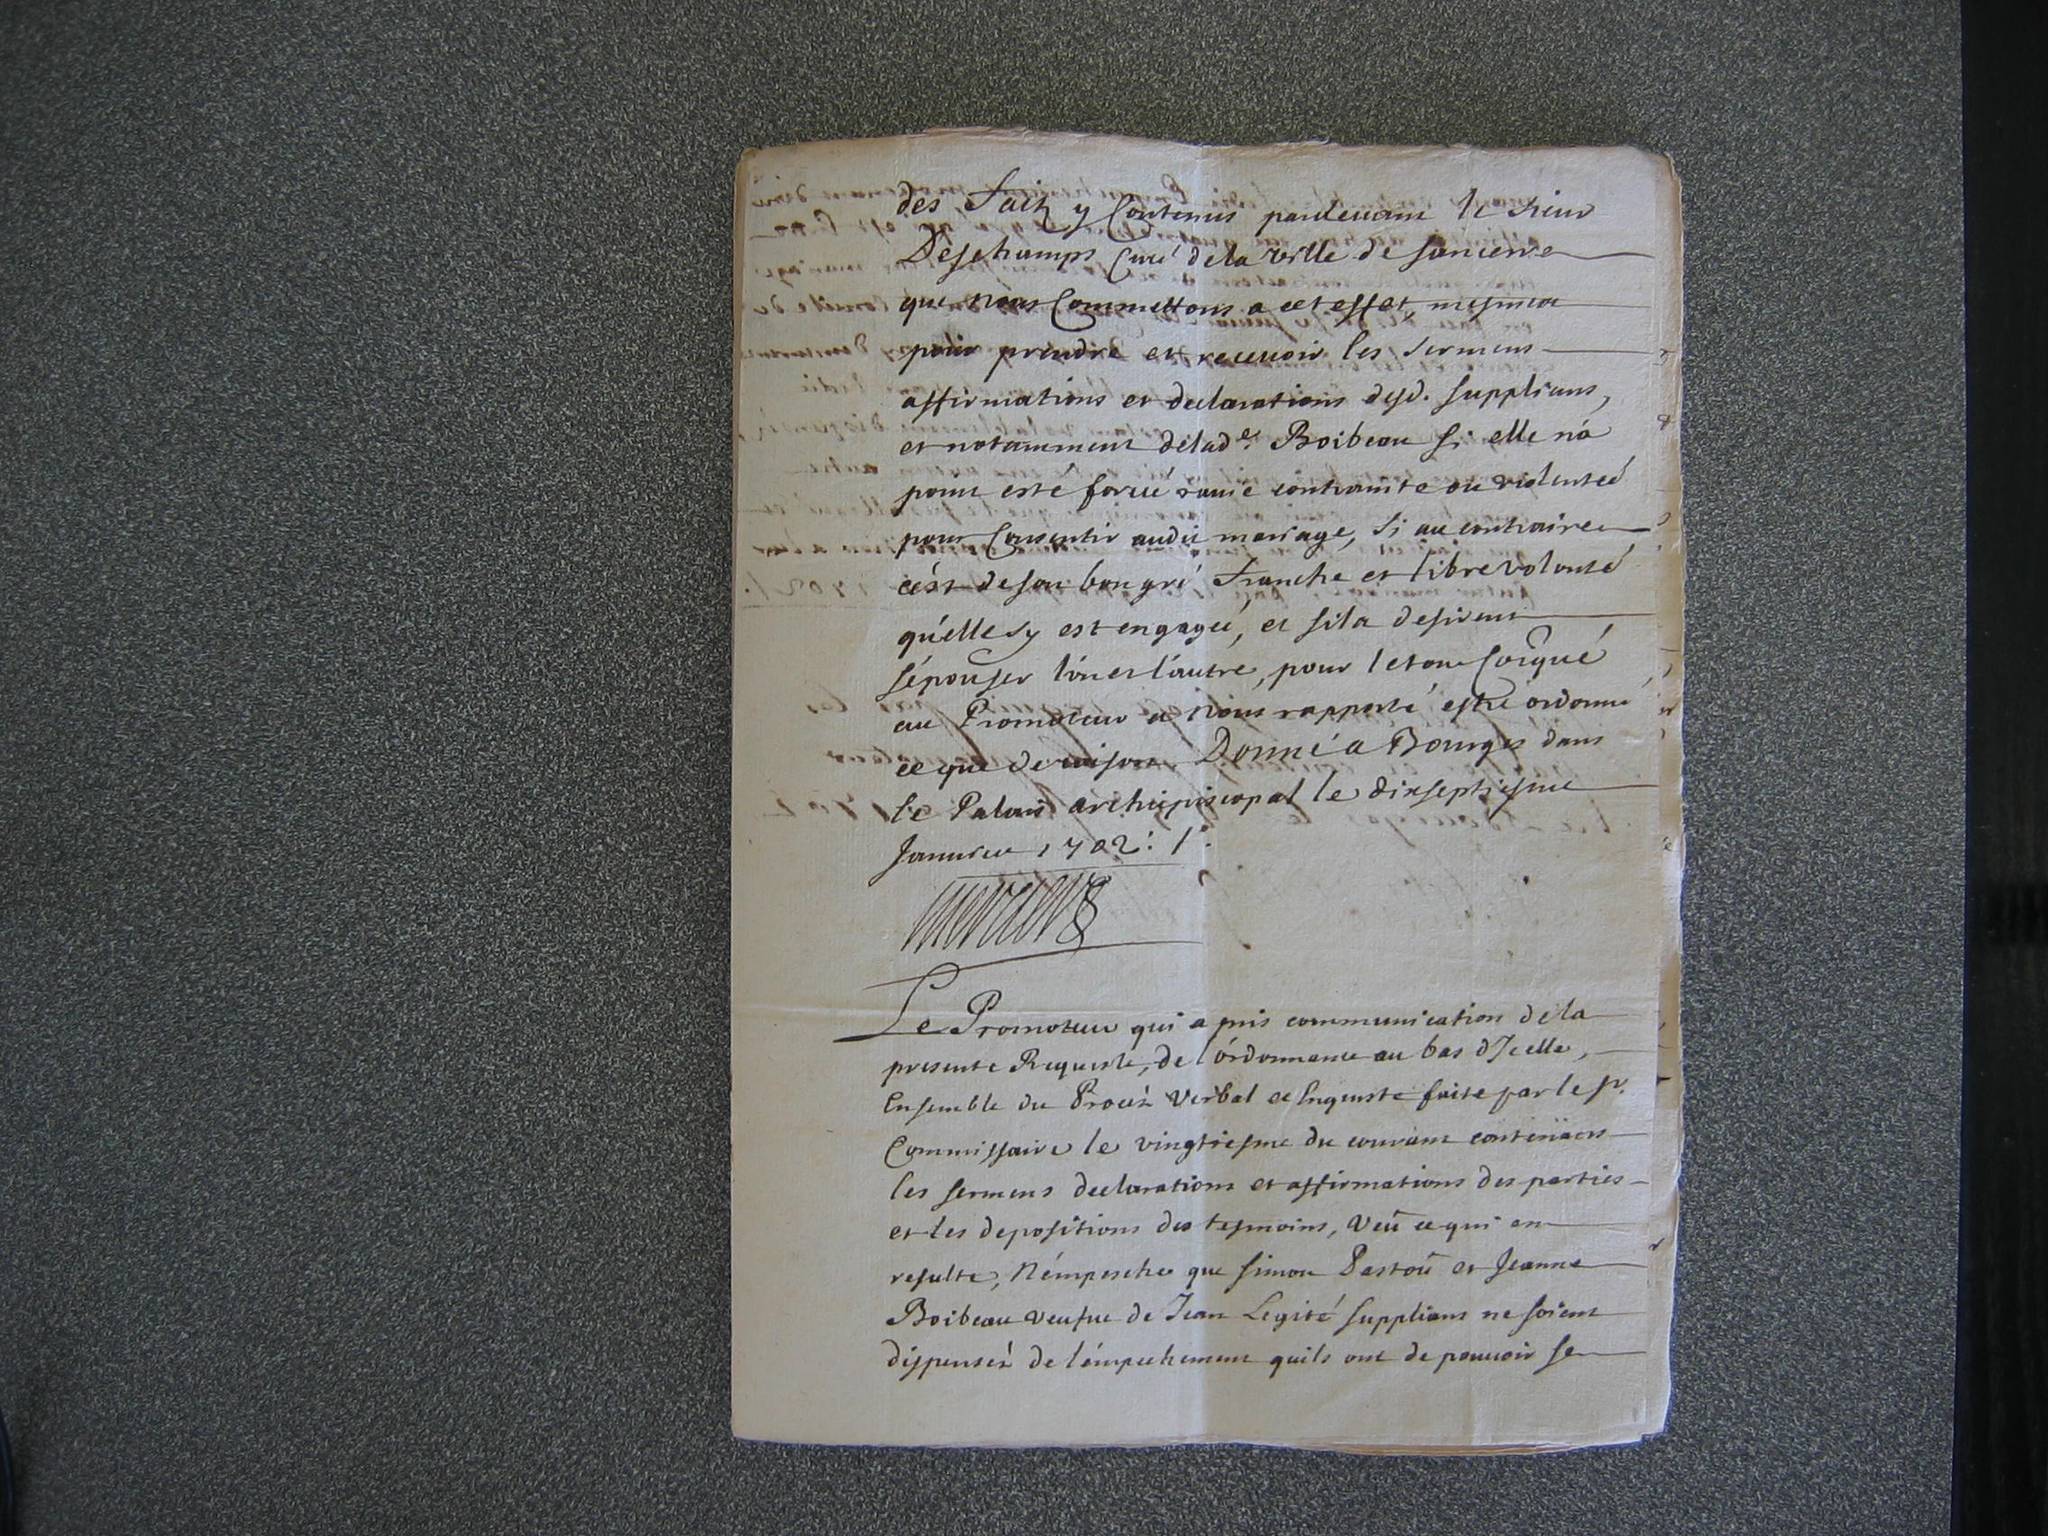 des faitz y Contenus pardevant le sieur
Deschamps Curé dela ville de sancerre
que nous Commettons a cet effet, mesme
pour prendre et recevoir les sermens
affirmations et declarations desd. supplians,
et notamment delade. Boibeau si elle na
point esté forcée ravie contrainte ou violentéé
pour Consentir audit mariage, si au contraire
cést de son bon gré franche et libre volonté
qu'elle sy est engagéé, et sils desirent
sépouser lún et láutre, pour le tout
au Promoteur et a Nous rapporté estre ordonné
ce que de raison Donné a Bourges dans
le Palais archiepiscopal le dixseptiesme
Janvier 1702:
Le Promoteur qui a pris communication dela
presente Requeste, de lórdonnance au bas dJcelle,
Ensemble du Procéz verbal et Enqueste faite par le sr.
Commissaire le vingtiesme du courant contenans
les sermens declarations et affirmations des parties
et les depositions des tesmoins, Veü ce qui en
resulte, Némpesche que simon Pastoü et Jeanne
Boibeau veufve de Jean Legité supplians ne soient
dispenséz de lémpechement quils ont de pouvoir se